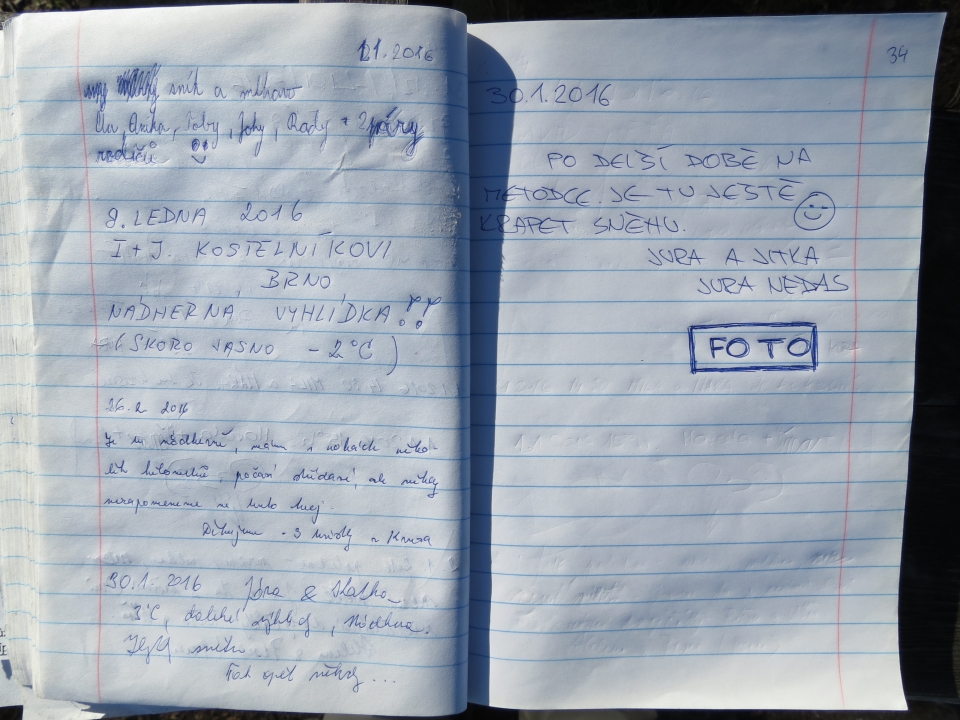 1.1.2016
sníh a mlhavo
Ila, Anika, Toby, Johy, Rady + 2 páry
rodičů
8. LEDNA 2016
I + J. KOSTELNÍKOVI
BRNO
NÁDHERNÁ VYHLÍDKA!!
(SKORO JASNO -2°C)
26.2 2016
Je tu nádherně, mám v nohách něko-
lik kilometrů, počasí střídavé, ale nikdy
nezapomeneme na tento
Děkujeme - 3 z Krnova
30.1. 2016 Jóra & Katka
3°C, daleké výhledy, nádhera.
sněhu.
Tak opět někdy...
34
30.1.2016
PO DELŠÍ DOBĚ NA
METODCE. JE TU JEŠTĚ
KRAPET SNĚHU.
JURA A JITKA
JURA NEDAS
FOTO